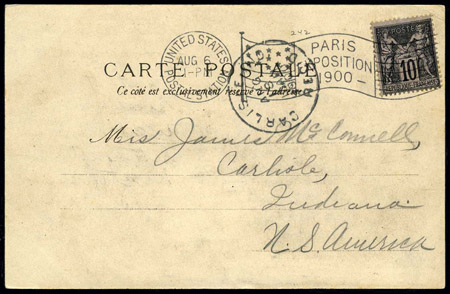 242
UNITED STATES
AUG 6
PARIS
EXPOSITION
1900
POSTES
10
CARTE POSTALE
CARLISLE
REC'D
Ce côté est exclusivement réservé à l'adresse
Miss James McConnell,
Carlisle,
Indiana.
N. S. America